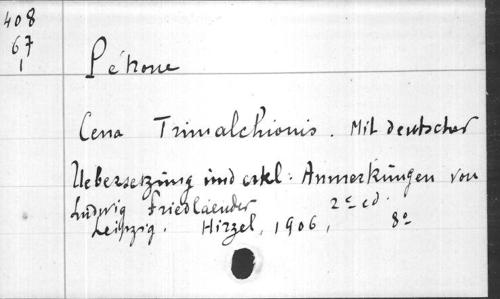 408
67
1
Pétrone
Cena Trimalchionis. Mit deutscher
Uebersetzung und erkl: Anmerkungen von
Ludwig Friedlaender 2e ed.
Leipzig. Hirzel, 1906, 8°